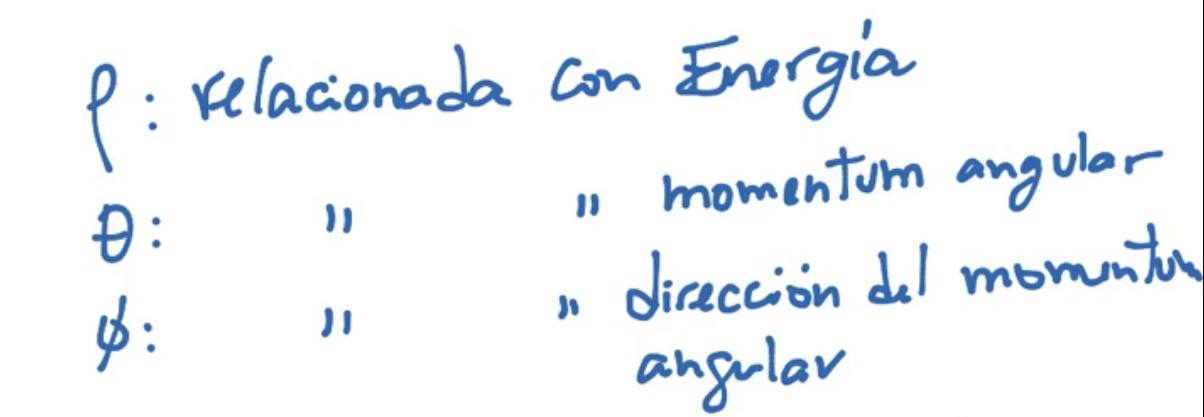 ρ: relacionada con Energía
θ: " " momentum angular
ϕ: " " dirección del momentum
angular